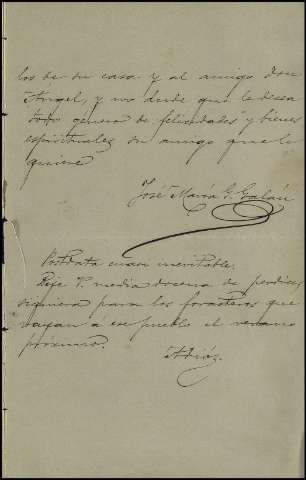 los de su casa y al amigo Don
Angel, y no dude que le desea
todo genero de felicidades y bienes
espirituales su amigo que le
quiere
José María G. Galán
Postdata cuasi inevitable.
Deje V. media docena de perdices
siquiera para los forasteros que
vayan á ese pueblo el verano
próximo.
Adiós.